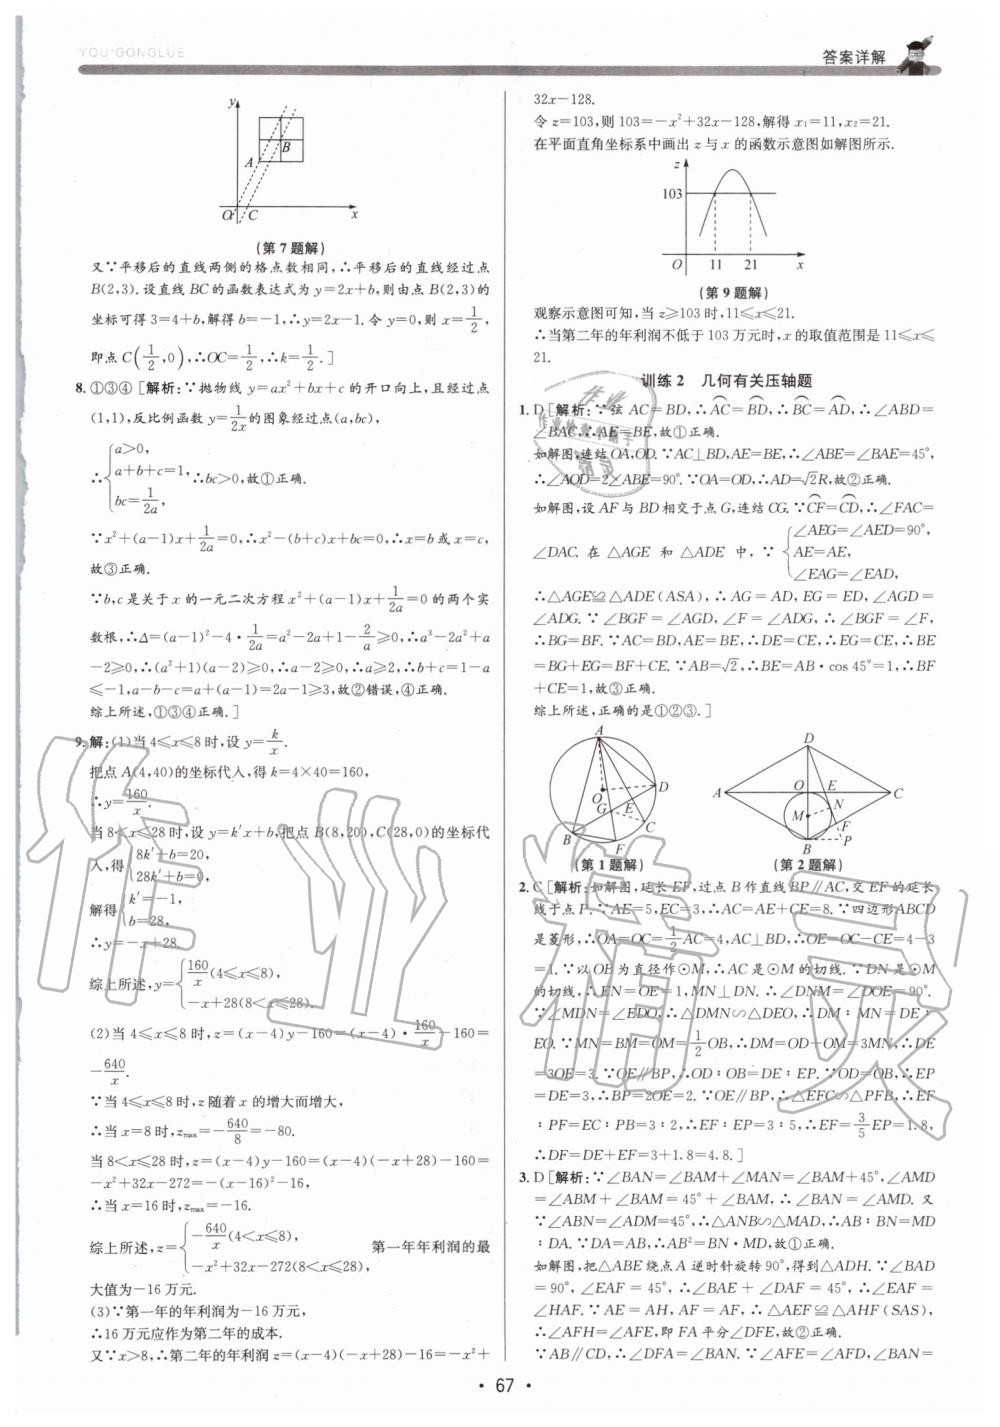 YOU GONGLÜE
答案详解
y
A
B
O
C
x
(第7题解)
又∵平移后的直线两侧的格点数相同,∴平移后的直线经过点
B(2,3).设直线BC的函数表达式为y=2x+b,则由点B(2,3)的
坐标可得3=4+b,解得b=-1,∴y=2x-1.令y=0,则x=1/2,
即点C(1/2,0),∴OC=1/2,∴k=1/2.]
8.①③④[解析:∵抛物线y=ax²+bx+c的开口向上,且经过点
(1,1),反比例函数y=1/2x的图象经过点(a,bc),
∴{a>0,
a+b+c=1,∴bc>0,故①正确.
bc=1/2a,
∵x²+(a-1)x+1/2a=0,∴x²-(b+c)x+bc=0,∴x=b或x=c,
故③正确.
∵b,c是关于x的一元二次方程x²+(a-1)x+1/2a=0的两个实
数根,∴Δ=(a-1)²-4·1/2a=a²-2a+1-2/a≥0,∴a³-2a²+a
-2≥0,∴(a²+1)(a-2)≥0,∴a-2≥0,∴a≥2,∴b+c=1-a
≤-1,a-b-c=a+(a-1)=2a-1≥3,故②错误,④正确.
综上所述,①③④正确.]
9.解:(1)当4≤x≤8时,设y=k/x.
把点A(4,40)的坐标代入,得k=4×40=160,
∴y=160/x.
当8<x≤28时,设y=k′x+b,把点B(8,20),C(28,0)的坐标代
入,得{8k′+b=20,
28k′+b=0,
解得{k′=-1,
b=28,
∴y=-x+28.
综上所述,y={160/x(4≤x≤8),
-x+28(8<x≤28).
(2)当4≤x≤8时,z=(x-4)y-160=(x-4)·160/x-160=
-640/x.
∵当4≤x≤8时,z随着x的增大而增大,
∴当x=8时,zmax=-640/8=-80.
当8<x≤28时,z=(x-4)y-160=(x-4)(-x+28)-160=
-x²+32x-272=-(x-16)²-16,
∴当x=16时,zmax=-16.
综上所述,z={-640/x(4<x≤8),
-x²+32x-272(8<x≤28), 第一年年利润的最
大值为-16万元.
(3)∵第一年的年利润为-16万元,
∴16万元应作为第二年的成本.
又∵x>8,∴第二年的年利润z=(x-4)(-x+28)-16=-x²+
32x-128.
令z=103,则103=-x²+32x-128,解得x₁=11,x₂=21.
在平面直角坐标系中画出z与x的函数示意图如解图所示.
z
103
O 11 21 x
(第9题解)
观察示意图可知,当z≥103时,11≤x≤21.
∴当第二年的年利润不低于103万元时,x的取值范围是11≤x≤
21.
训练2 几何有关压轴题
1.D[解析:∵弦AC=BD,∴AC=BD,∴BC=AD,∴∠ABD=
∠BAC,∴AE=BE,故①正确.
如解图,连结OA,OD.∵AC⊥BD,AE=BE,∴∠ABE=∠BAE=45°,
∴∠AOD=2∠ABE=90°.∵OA=OD,∴AD=√2R,故②正确.
如解图,设AF与BD相交于点G,连结CG.∵CF=CD,∴∠FAC=
∠DAC.在△AGE和△ADE中,∵{∠AEG=∠AED=90°,
AE=AE,
∠EAG=∠EAD,
∴△AGE≌△ADE(ASA),∴AG=AD,EG=ED,∠AGD=
∠ADG.∵∠BGF=∠AGD,∠F=∠ADG,∴∠BGF=∠F,
∴BG=BF.∵AC=BD,AE=BE,∴DE=CE,∴EG=CE,∴BE
=BG+EG=BF+CE.∵AB=√2,∴BE=AB·cos 45°=1,∴BF
+CE=1,故③正确.
综上所述,正确的是①②③.]
A
O
D
G
E
C
B
F
(第1题解)
D
A
O
E
C
M
N
F
B
P
(第2题解)
2.C[解析:如解图,延长EF,过点B作直线BP∥AC,交EF的延长
线于点P.∵AE=5,EC=3,∴AC=AE+CE=8.∵四边形ABCD
是菱形,∴OA=OC=1/2AC=4,AC⊥BD,∴OE=OC-CE=4-3
=1.∵以OB为直径作⊙M,∴AC是⊙M的切线.∵DN是⊙M
的切线,∴EN=OE=1,MN⊥DN.∴∠DNM=∠DOE=90°.
∵∠MDN=∠EDO,∴△DMN∽△DEO,∴DM∶MN=DE∶
EO.∵MN=BM=OM=1/2OB,∴DM=OD+OM=3MN,∴DE
=3OE=3.∵OE∥BP,∴OD∶OB=DE∶EP.∵OD=OB,∴EP
=DE=3,∴BP=2OE=2.∵OE∥BP,∴△EFC∽△PFB,∴EF
∶PF=EC∶PB=3∶2,∴EF∶EP=3∶5,∴EF=3/5EP=1.8,
∴DF=DE+EF=3+1.8=4.8.]
3.D[解析:∵∠BAN=∠BAM+∠MAN=∠BAM+45°,∠AMD
=∠ABM+∠BAM=45°+∠BAM,∴∠BAN=∠AMD.又
∵∠ABN=∠ADM=45°,∴△ANB∽△MAD,∴AB∶BN=MD
∶DA.∵DA=AB,∴AB²=BN·MD,故①正确.
如解图,把△ABE绕点A逆时针旋转90°,得到△ADH.∵∠BAD
=90°,∠EAF=45°,∴∠BAE+∠DAF=45°,∴∠EAF=
∠HAF.∵AE=AH,AF=AF,∴△AEF≌△AHF(SAS),
∴∠AFH=∠AFE,即FA平分∠DFE,故②正确.
∵AB∥CD,∴∠DFA=∠BAN.∵∠AFE=∠AFD,∠BAN=
·67·
作业精灵